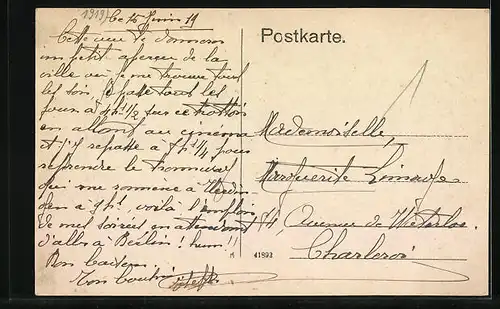 (1919) Ce 15 Juin 19
Cette vue te donnera
un petit aperçu de la
ville où je me trouve tous
les soirs, je passe tous les
jours à 4h 1/2 sur ce trottoir
en allant au cinéma
et j'y repasse à 7h 1/4 pour
reprendre le tramway
qui me ramène à
à 9h. voilà l'emploi
de mes soirées en attendant
d'aller à Berlin ! hum !!
Bon baiser
Ton
Postkarte.
Mademoiselle,
Marguerite
14, Avenue de Waterloo.
Charleroi
41892